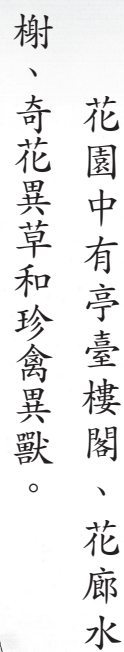 花園中有亭臺樓閣、花廊水
榭、奇花異草和珍禽異獸。